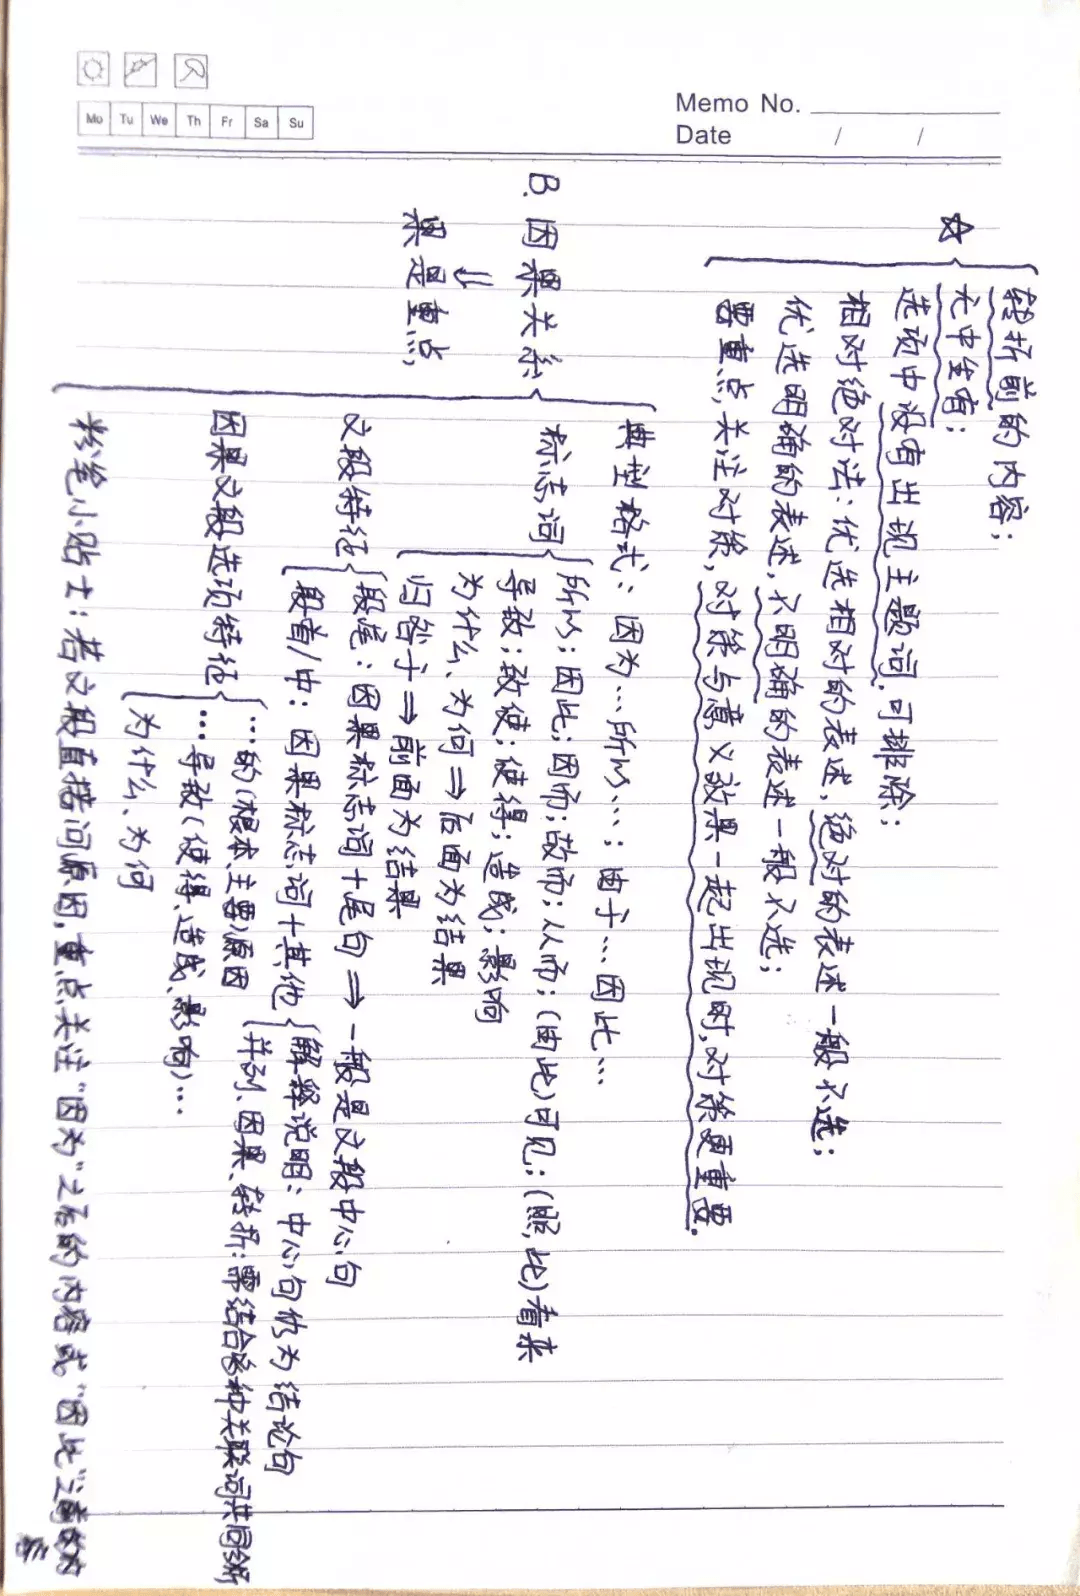 Mo Tu We Th Fr Sa Su
Memo No.
Date / /
☆
转折前的内容；
无中生有；
选项中没有出现主题词，可排除；
相对绝对法：优选相对的表述，绝对的表述一般不选；
优选明确的表述，不明确的表述一般不选；
要重点关注对策，对策与意义效果一起出现时，对策更重要.
B. 因果关系
↓
果是重点
典型格式：因为…所以…；由于…因此…
标志词
所以；因此；因而；故而；从而；（由此）可见；（照此）看来
导致；致使；使得；造成；影响
为什么、为何⇒后面为结果
归咎于⇒前面为结果
文段特征
段尾：因果标志词+尾句⇒一般是文段中心句
段首/中：因果标志词+其他
解释说明：中心句仍为结论句
并列、因果、转折：需结合各种关联词共同分析
因果文段选项特征
…的（根本、主要）原因
…导致（使得、造成、影响）…
为什么、为何
粉笔小贴士：若文段直接问原因，重点关注“因为”之后的内容或“因此”之前的内